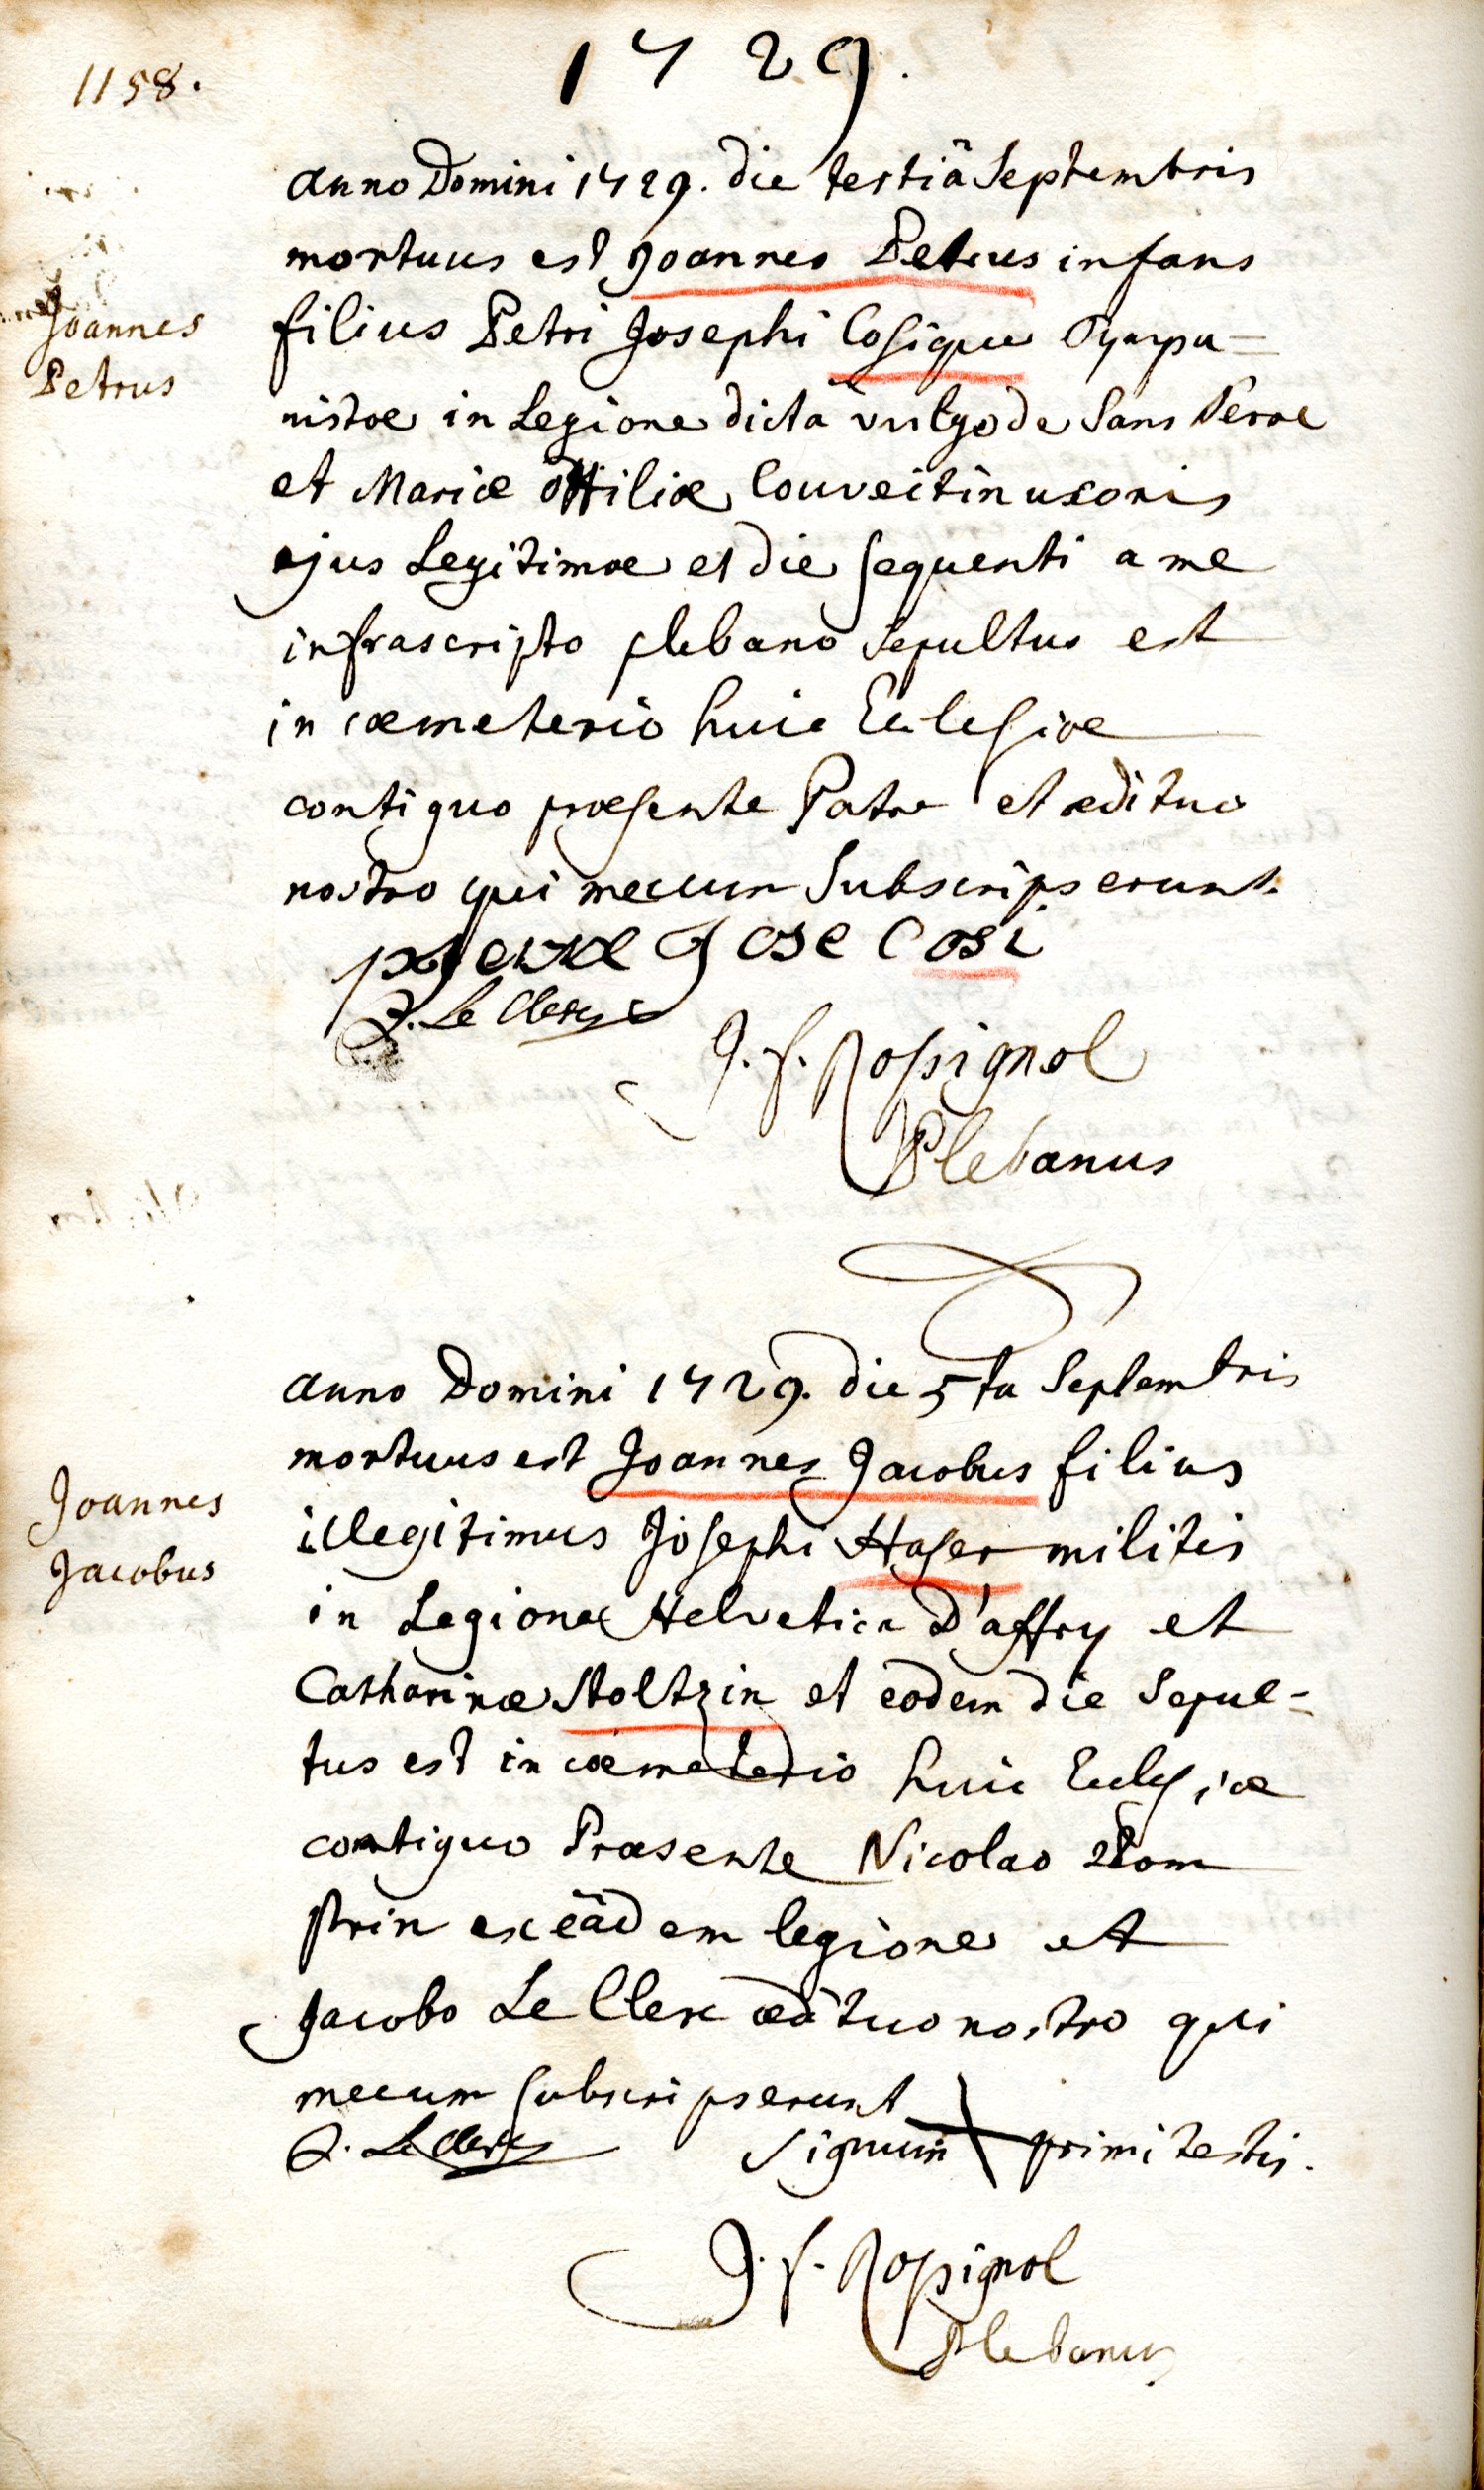 1158.
1729.
anno Domini 1729. die tertiâ Septembris
mortuus est Joannes Petrus infans
Joannes
Petrus
filius Petri Josephi Cosique Tympa=
nistae in Legione dictâ vulgo de Sans Perre
et Mariae ottiliae Couveitin uxoris
ejus Legitimae et die sequenti a me
infrascripto plebano sepultus est
in caemeterio huic Ecclesiae
contiguo praesente Patre et aedituo
nostro qui mecum Subscripserunt.
pierre Jose Cosi
J. Le Clerc
J. f. Rossignol
Plebanus
anno Domini 1729. die 5ta Septembris
mortuus est Joannes Jacobus filius
Joannes
Jacobus
illegitimus Josephi Haser militis
in Legione Helvetica D'affry et
Catharinae Stoltzin et eodem die Sepul=
tus est in caemeterio huic Ecclesiae
contiguo Praesente Nicolao
ex eâdem legione et
Jacobo Le Clerc aedituo nostro qui
mecum subscripserunt
J. Le Clerc Signum primi testis.
J. f. Rossignol
Plebanus